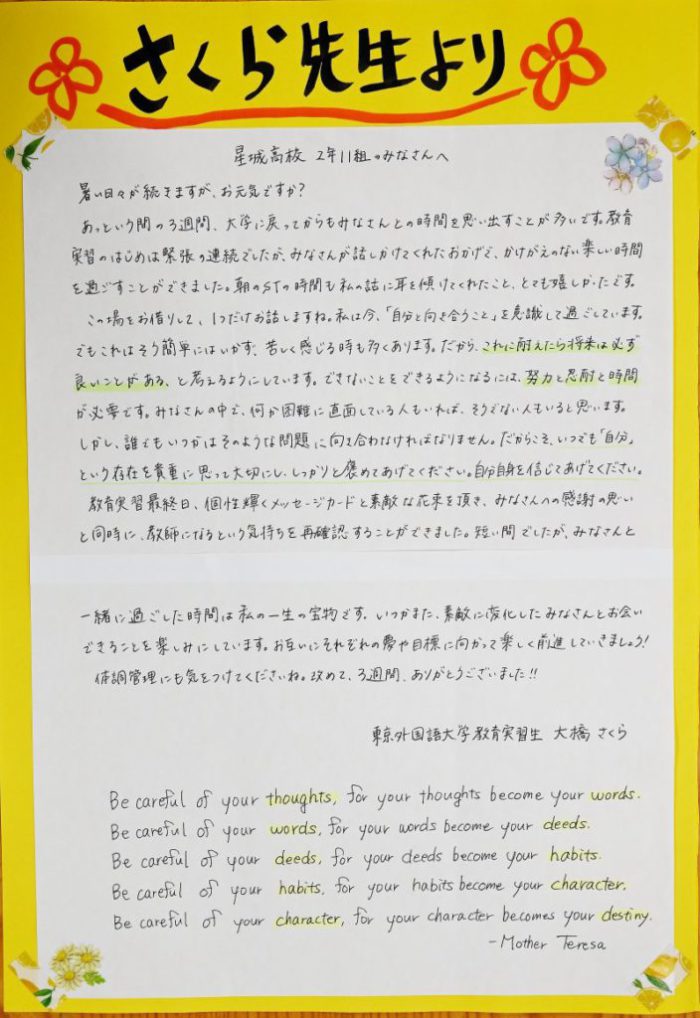 さくら先生より
星城高校 2年11組のみなさんへ
暑い日々が続きますが、お元気ですか？
あっという間の3週間、大学に戻ってからもみなさんとの時間を思い出すことが多いです。教育
実習のはじめは緊張の連続でしたが、みなさんが話しかけてくれたおかげで、かけがえのない楽しい時間
を過ごすことができました。朝のSTの時間も私の話に耳を傾けてくれたこと、とても嬉しかったです。
この場をお借りして、1つだけお話しますね。私は今、「自分と向き合うこと」を意識して過ごしています。
でもこれはそう簡単にはいかず、苦しく感じる時も多くあります。だから、これに耐えたら将来は必ず
良いことがある、と考えるようにしています。できないことをできるようになるには、努力と忍耐と時間
が必要です。みなさんの中で、何か困難に直面している人もいれば、そうでない人もいると思います。
しかし、誰でもいつかはそのような問題に向き合わなければなりません。だからこそ、いつでも「自分」
という存在を貴重に思って大切にし、しっかりと褒めてあげてください。自分自身を信じてあげてください。
教育実習最終日、個性輝くメッセージカードと素敵な花束を頂き、みなさんへの感謝の思い
と同時に、教師になるという気持ちを再確認することができました。短い間でしたが、みなさんと
一緒に過ごした時間は私の一生の宝物です。いつかまた、素敵に変化したみなさんとお会い
できることを楽しみにしています。お互いにそれぞれの夢や目標に向かって楽しく前進していきましょう！
体調管理にも気をつけてくださいね。改めて、3週間、ありがとうございました!!
東京外国語大学教育実習生 大橋 さくら
Be careful of your thoughts, for your thoughts become your words.
Be careful of your words, for your words become your deeds.
Be careful of your deeds, for your deeds become your habits.
Be careful of your habits, for your habits become your character.
Be careful of your character, for your character becomes your destiny.
-Mother Teresa